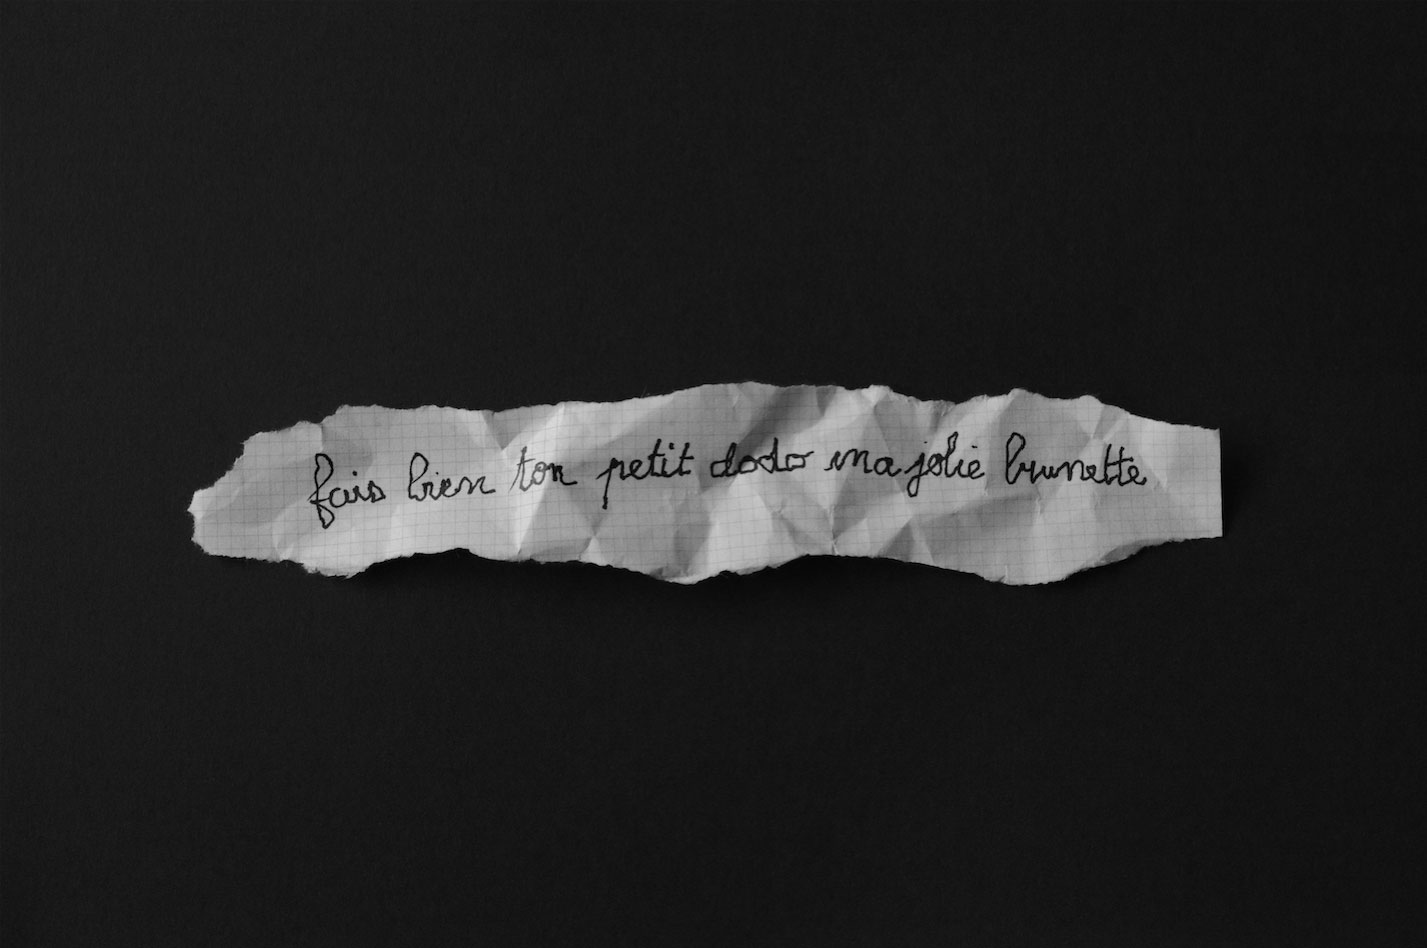 fais bien ton petit dodo ma jolie brunette